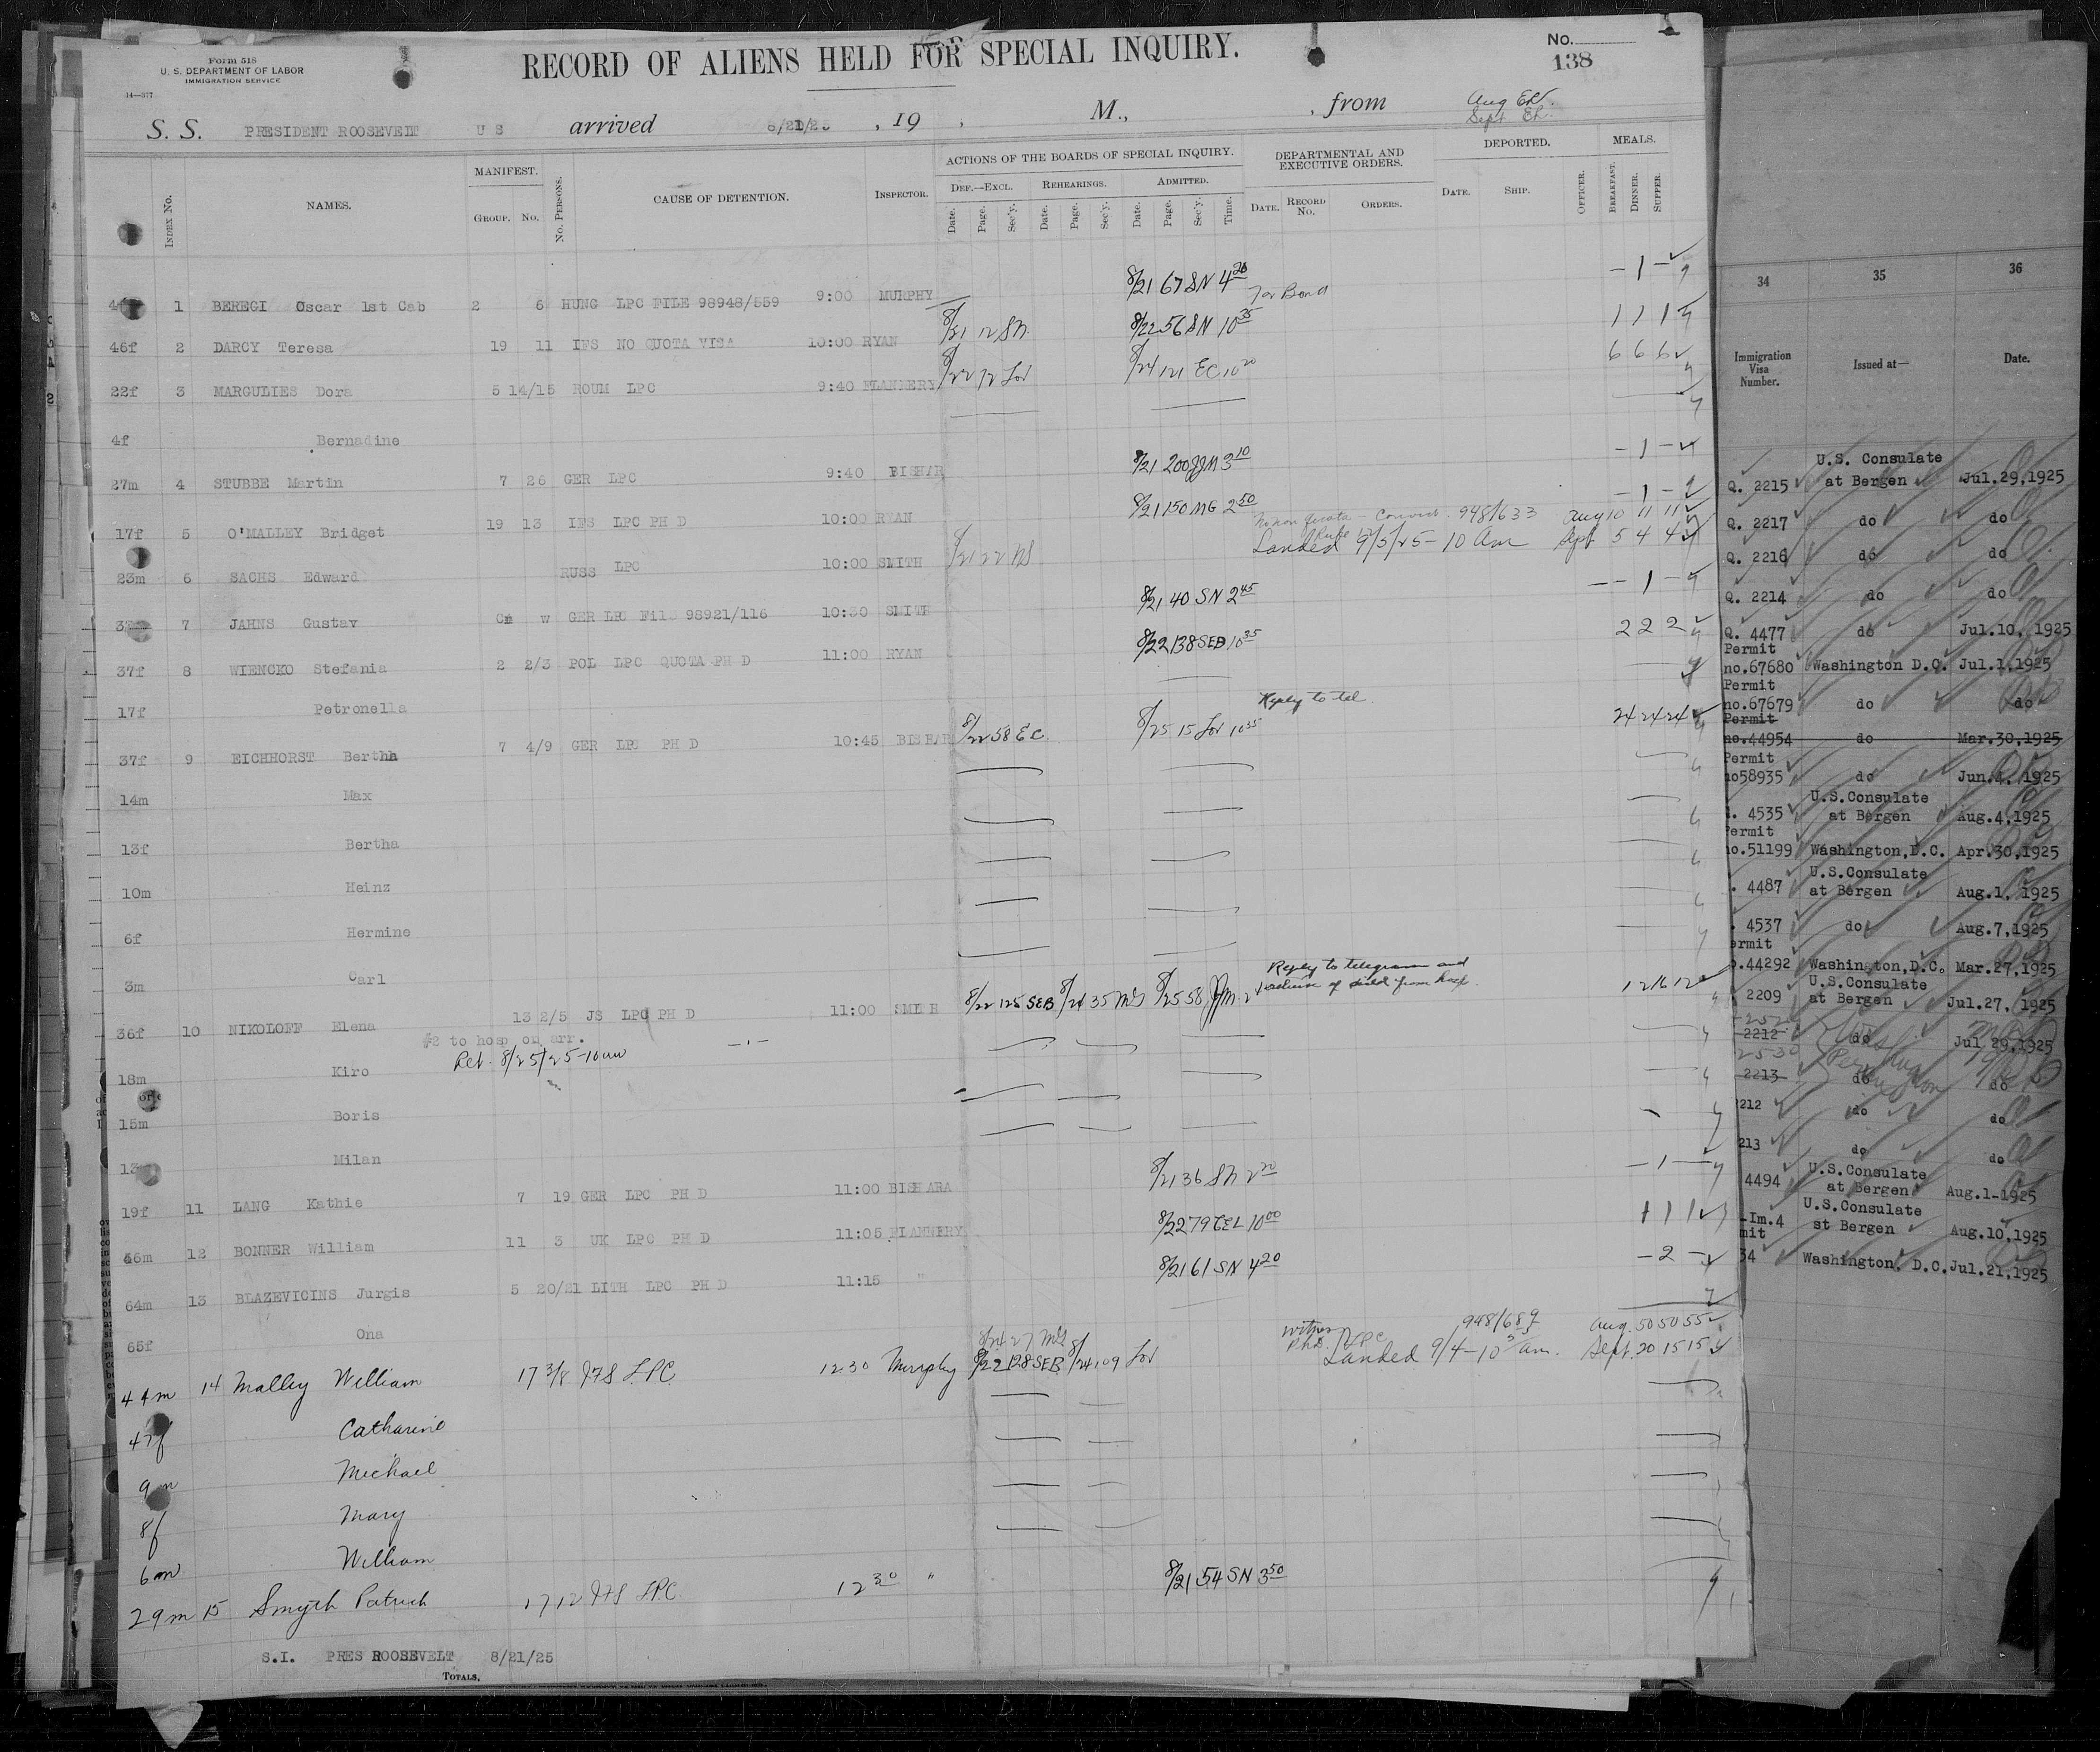 Form 518
U. S. DEPARTMENT OF LABOR
IMMIGRATION SERVICE
14—377
RECORD OF ALIENS HELD FOR SPECIAL INQUIRY.
No.
138
S. S. PRESIDENT ROOSEVELT U S arrived 8/21/25 , 19 , M., , from
Aug
Sept
INDEX NO.
NAMES.
MANIFEST.
GROUP. NO.
NO. PERSONS.
CAUSE OF DETENTION.
INSPECTOR.
ACTIONS OF THE BOARDS OF SPECIAL INQUIRY.
DEF.—EXCL. REHEARINGS. ADMITTED.
Date. Page. Sec'y. Date. Page. Sec'y. Date. Page. Sec'y. Time.
DEPARTMENTAL AND EXECUTIVE ORDERS.
DATE. RECORD No. ORDERS.
DEPORTED.
DATE. SHIP. OFFICER.
MEALS.
BREAKFAST. DINNER. SUPPER.
1 BEREGI Oscar 1st Cab 2 6 HUNG LPC FILE 98948/559 9:00 MURPHY 8/21 67 SN 4 20 For Bond – 1 –
46f 2 DARCY Teresa 19 11 IFS NO QUOTA VISA 10:00 RYAN 8/21 12 SN 8/22 56 SN 10 35 1 1 1
22f 3 MARGULIES Dora 5 14/15 ROUM LPC 9:40 FLANNERY 8/22 72 8/24 121 EC 10 20 6 6 6
4f Bernadine
27m 4 STUBBE Martin 7 26 GER LPC 9:40 BISHAR 8/21 200 JJM 3 10 – 1 –
17f 5 O'MALLEY Bridget 19 13 IFS LPC PH D 10:00 RYAN 8/21 150 MG 2 50 – 1 –
23m 6 SACHS Edward RUSS LPC 10:00 SMITH 8/21 22 948/633 Aug 10 11 11
Landed 9/5/25 – 10 am Sept 5 4 4
7 JAHNS Gustav w GER LPC File 98921/116 10:30 SMITH 8/21 40 SN 2 45 – – 1 –
37f 8 WIENCKO Stefania 2 2/3 POL LPC QUOTA PH D 11:00 RYAN 8/22 138 SEB 10 35 2 2 2
17f Petronella
37f 9 EICHHORST Bertha 7 4/9 GER LPC PH D 10:45 BISHAR 8/22 58 EC 8/25 15 10 35 Reply to tel. 24 24 24
14m Max
13f Bertha
10m Heinz
6f Hermine
3m Carl
36f 10 NIKOLOFF Elena 13 2/5 JS LPC PH D 11:00 SMITH 8/22 125 SEB 8/24 35 8/25 58 Reply to telegram and
of child from hosp. 12 16 12
#2 to hosp on arr.
Ret. 8/25/25-10am
18m Kiro
15m Boris
Milan
19f 11 LANG Kathie 7 19 GER LPC PH D 11:00 BISHARA 8/21 36 SN 2 20 – 1 –
12 BONNER William 11 3 UK LPC PH D 11:05 FLANNERY 8/22 79 10 00 1 1 1
64m 13 BLAZEVICINS Jurgis 5 20/21 LITH LPC PH D 11:15 " 8/21 61 SN 4 20 – 2 –
65f Ona
44m 14 Malley William 17 3/8 IFS LPC 12 30 Murphy 8/22 128 SEB 8/24 109
8/24 27
witness LPC 948/689 Aug. 50 50 55
Landed 9/4 – 10 am. Sept. 20 15 15
47f Catharine
9m Michael
8f Mary
6m William
29m 15 Smyth Patrick 17 12 IFS LPC 12 30 " 8/21 54 SN 3 50
S.I. PRES ROOSEVELT 8/21/25
TOTALS.
34 35 36
Immigration Visa Number. Issued at— Date.
Q. 2215 U.S. Consulate at Bergen Jul.29,1925
Q. 2217 do do
Q. 2216 do do
Q. 2214 do do
Q. 4477 do Jul.10, 1925
Permit no.67680 Washington D.C. Jul.1,1925
Permit no.67679 do do
Permit no.44954 do Mar.30,1925
Permit no58935 do 1925
4535 U.S.Consulate at Bergen Aug.4,1925
Permit no.51199 Washington,D.C. Apr.30,1925
4487 U.S.Consulate at Bergen Aug.1, 1925
4537 do Aug.7,1925
ermit .44292 Washington,D.C. Mar.27,1925
2209 U.S.Consulate at Bergen Jul.27, 1925
2212 do Jul 29,1925
2530
2213 do do
Washington
212 do do
213 do do
4494 U.S.Consulate at Bergen Aug.1-1925
Im.4 U.S.Consulate st Bergen Aug.10,1925
mit
34 Washington. D.C. Jul.21,1925